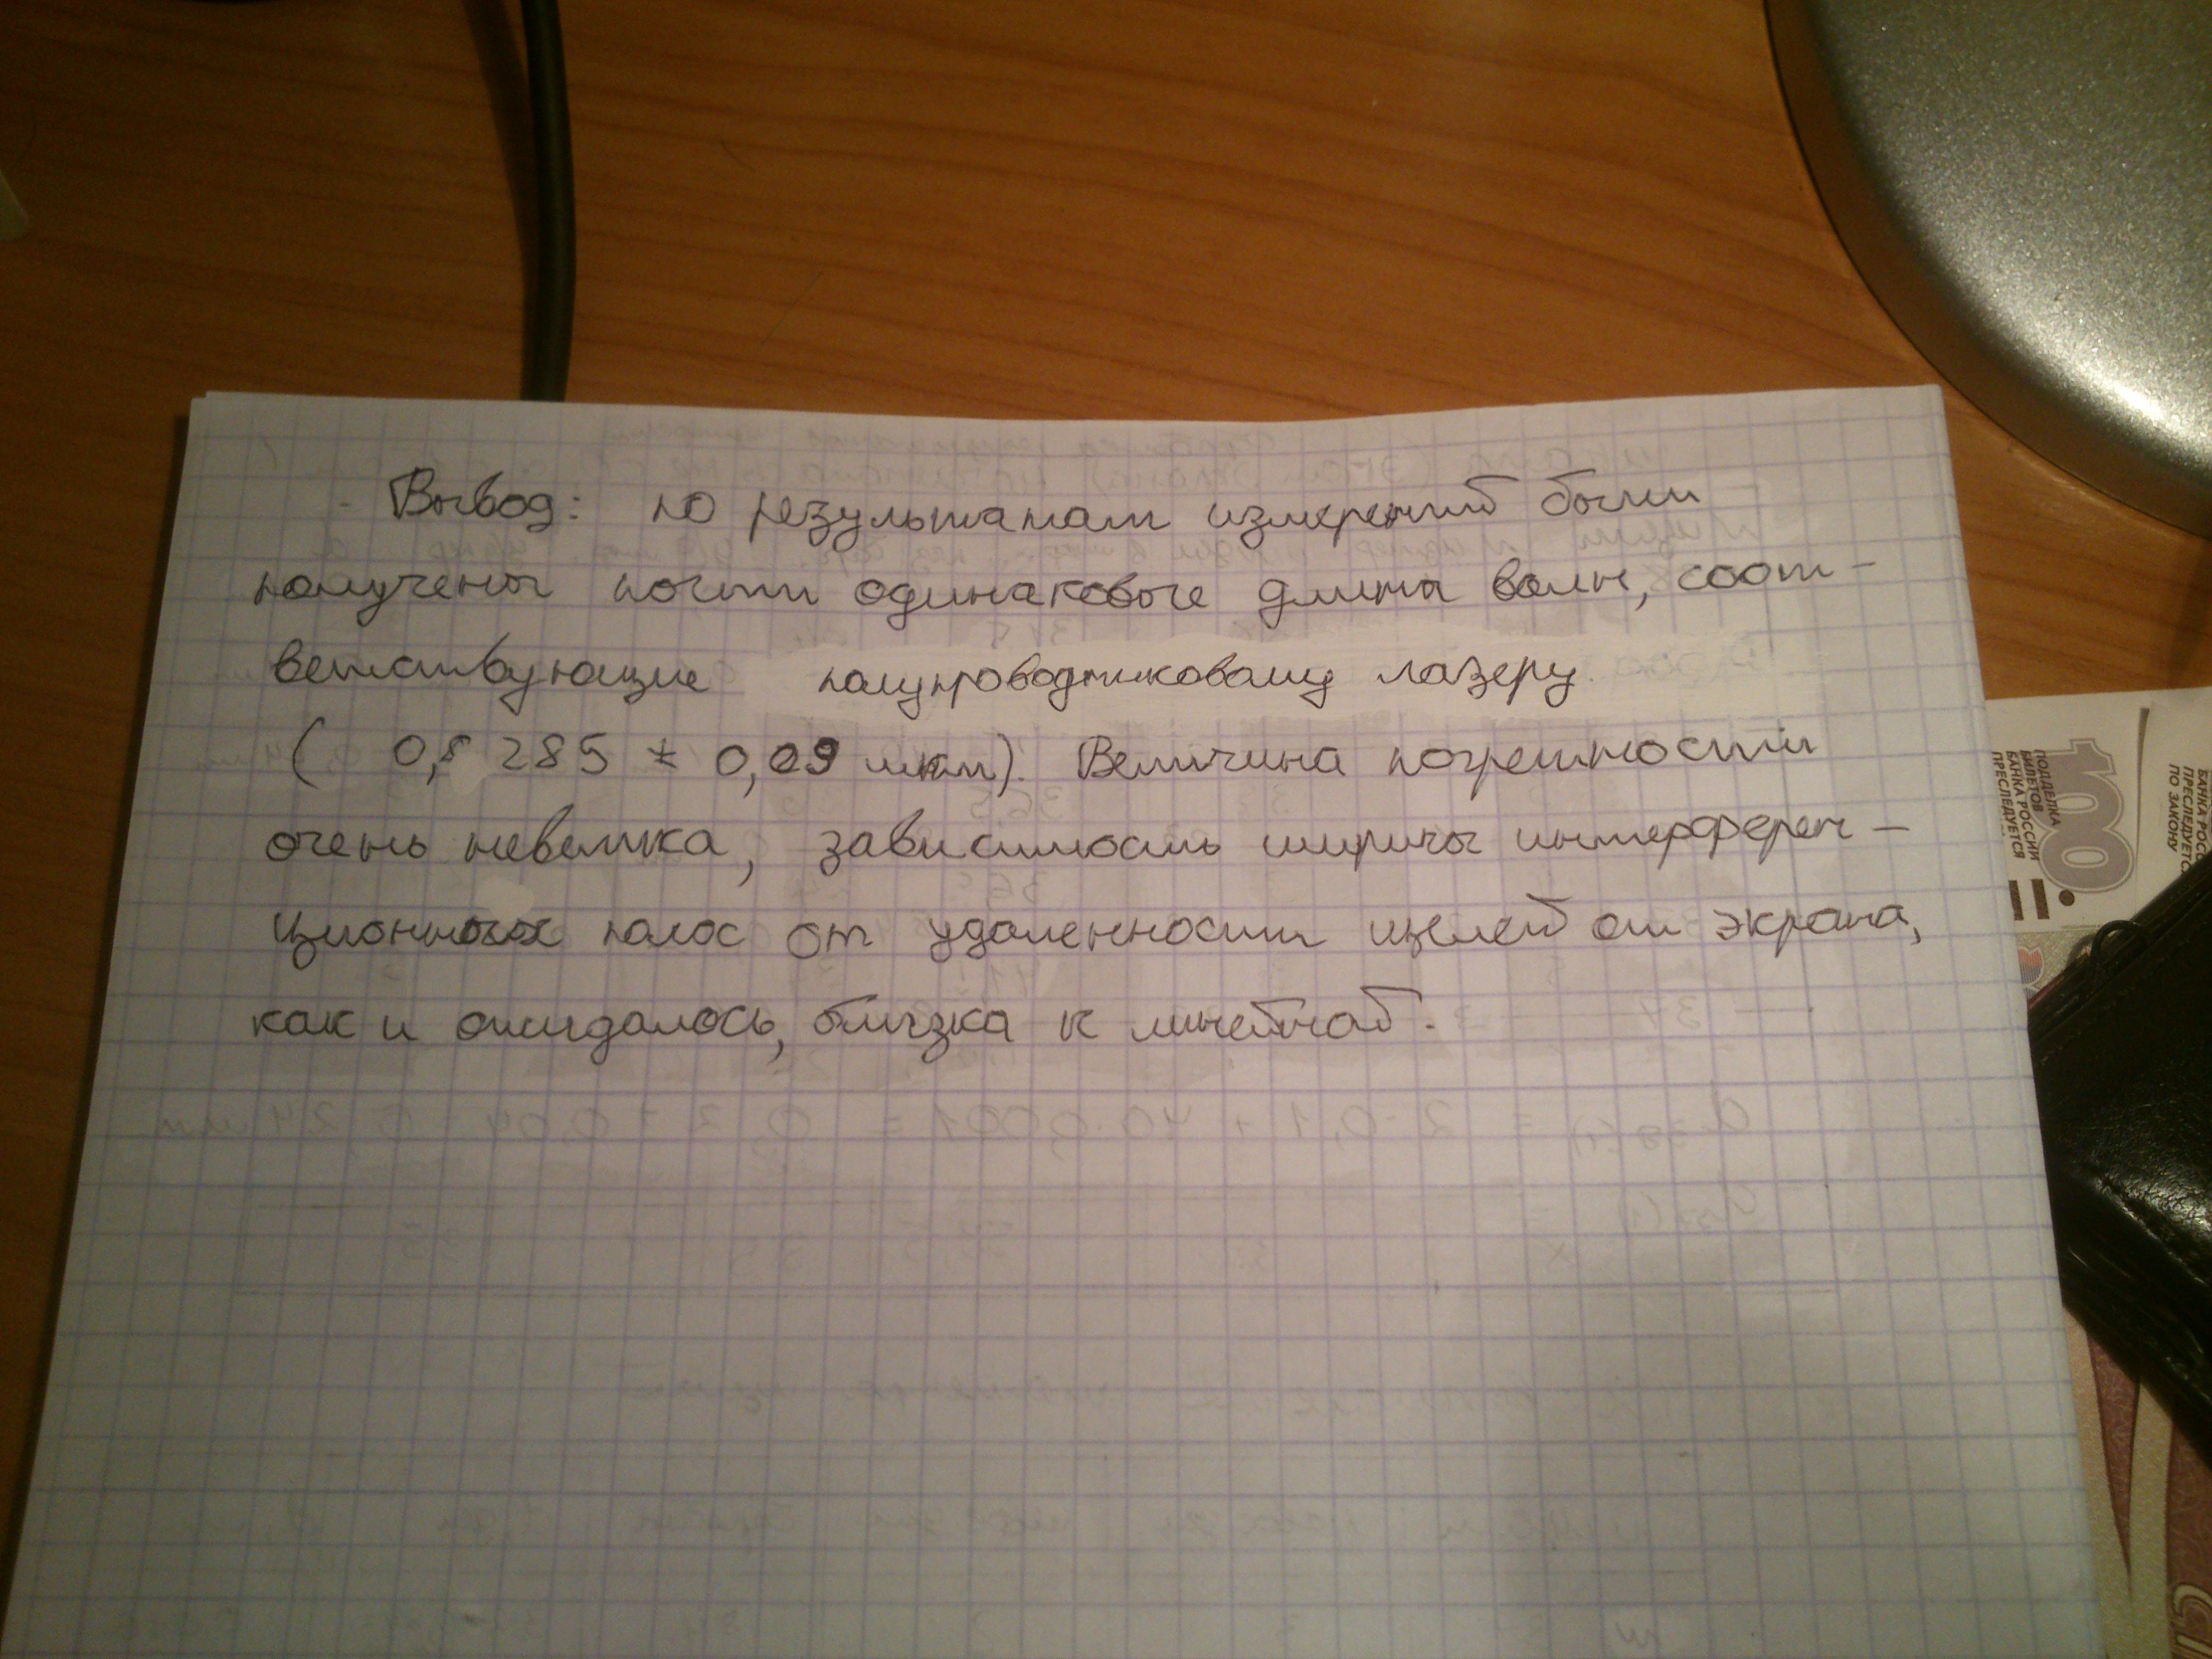 Вывод: по результатам измерений были
получены почти одинаковые длины волн, соот-
ветствующие полупроводниковому лазеру
( 0,8285 ± 0,09 мкм). Величина погрешности
очень невелика, зависимость ширины интерферен-
ционных полос от удаленности щелей от экрана,
как и ожидалось, близка к линейной.
100
ПОДДЕЛКА
БИЛЕТОВ
БАНКА РОССИИ
ПРЕСЛЕДУЕТСЯ
ПО ЗАКОНУ